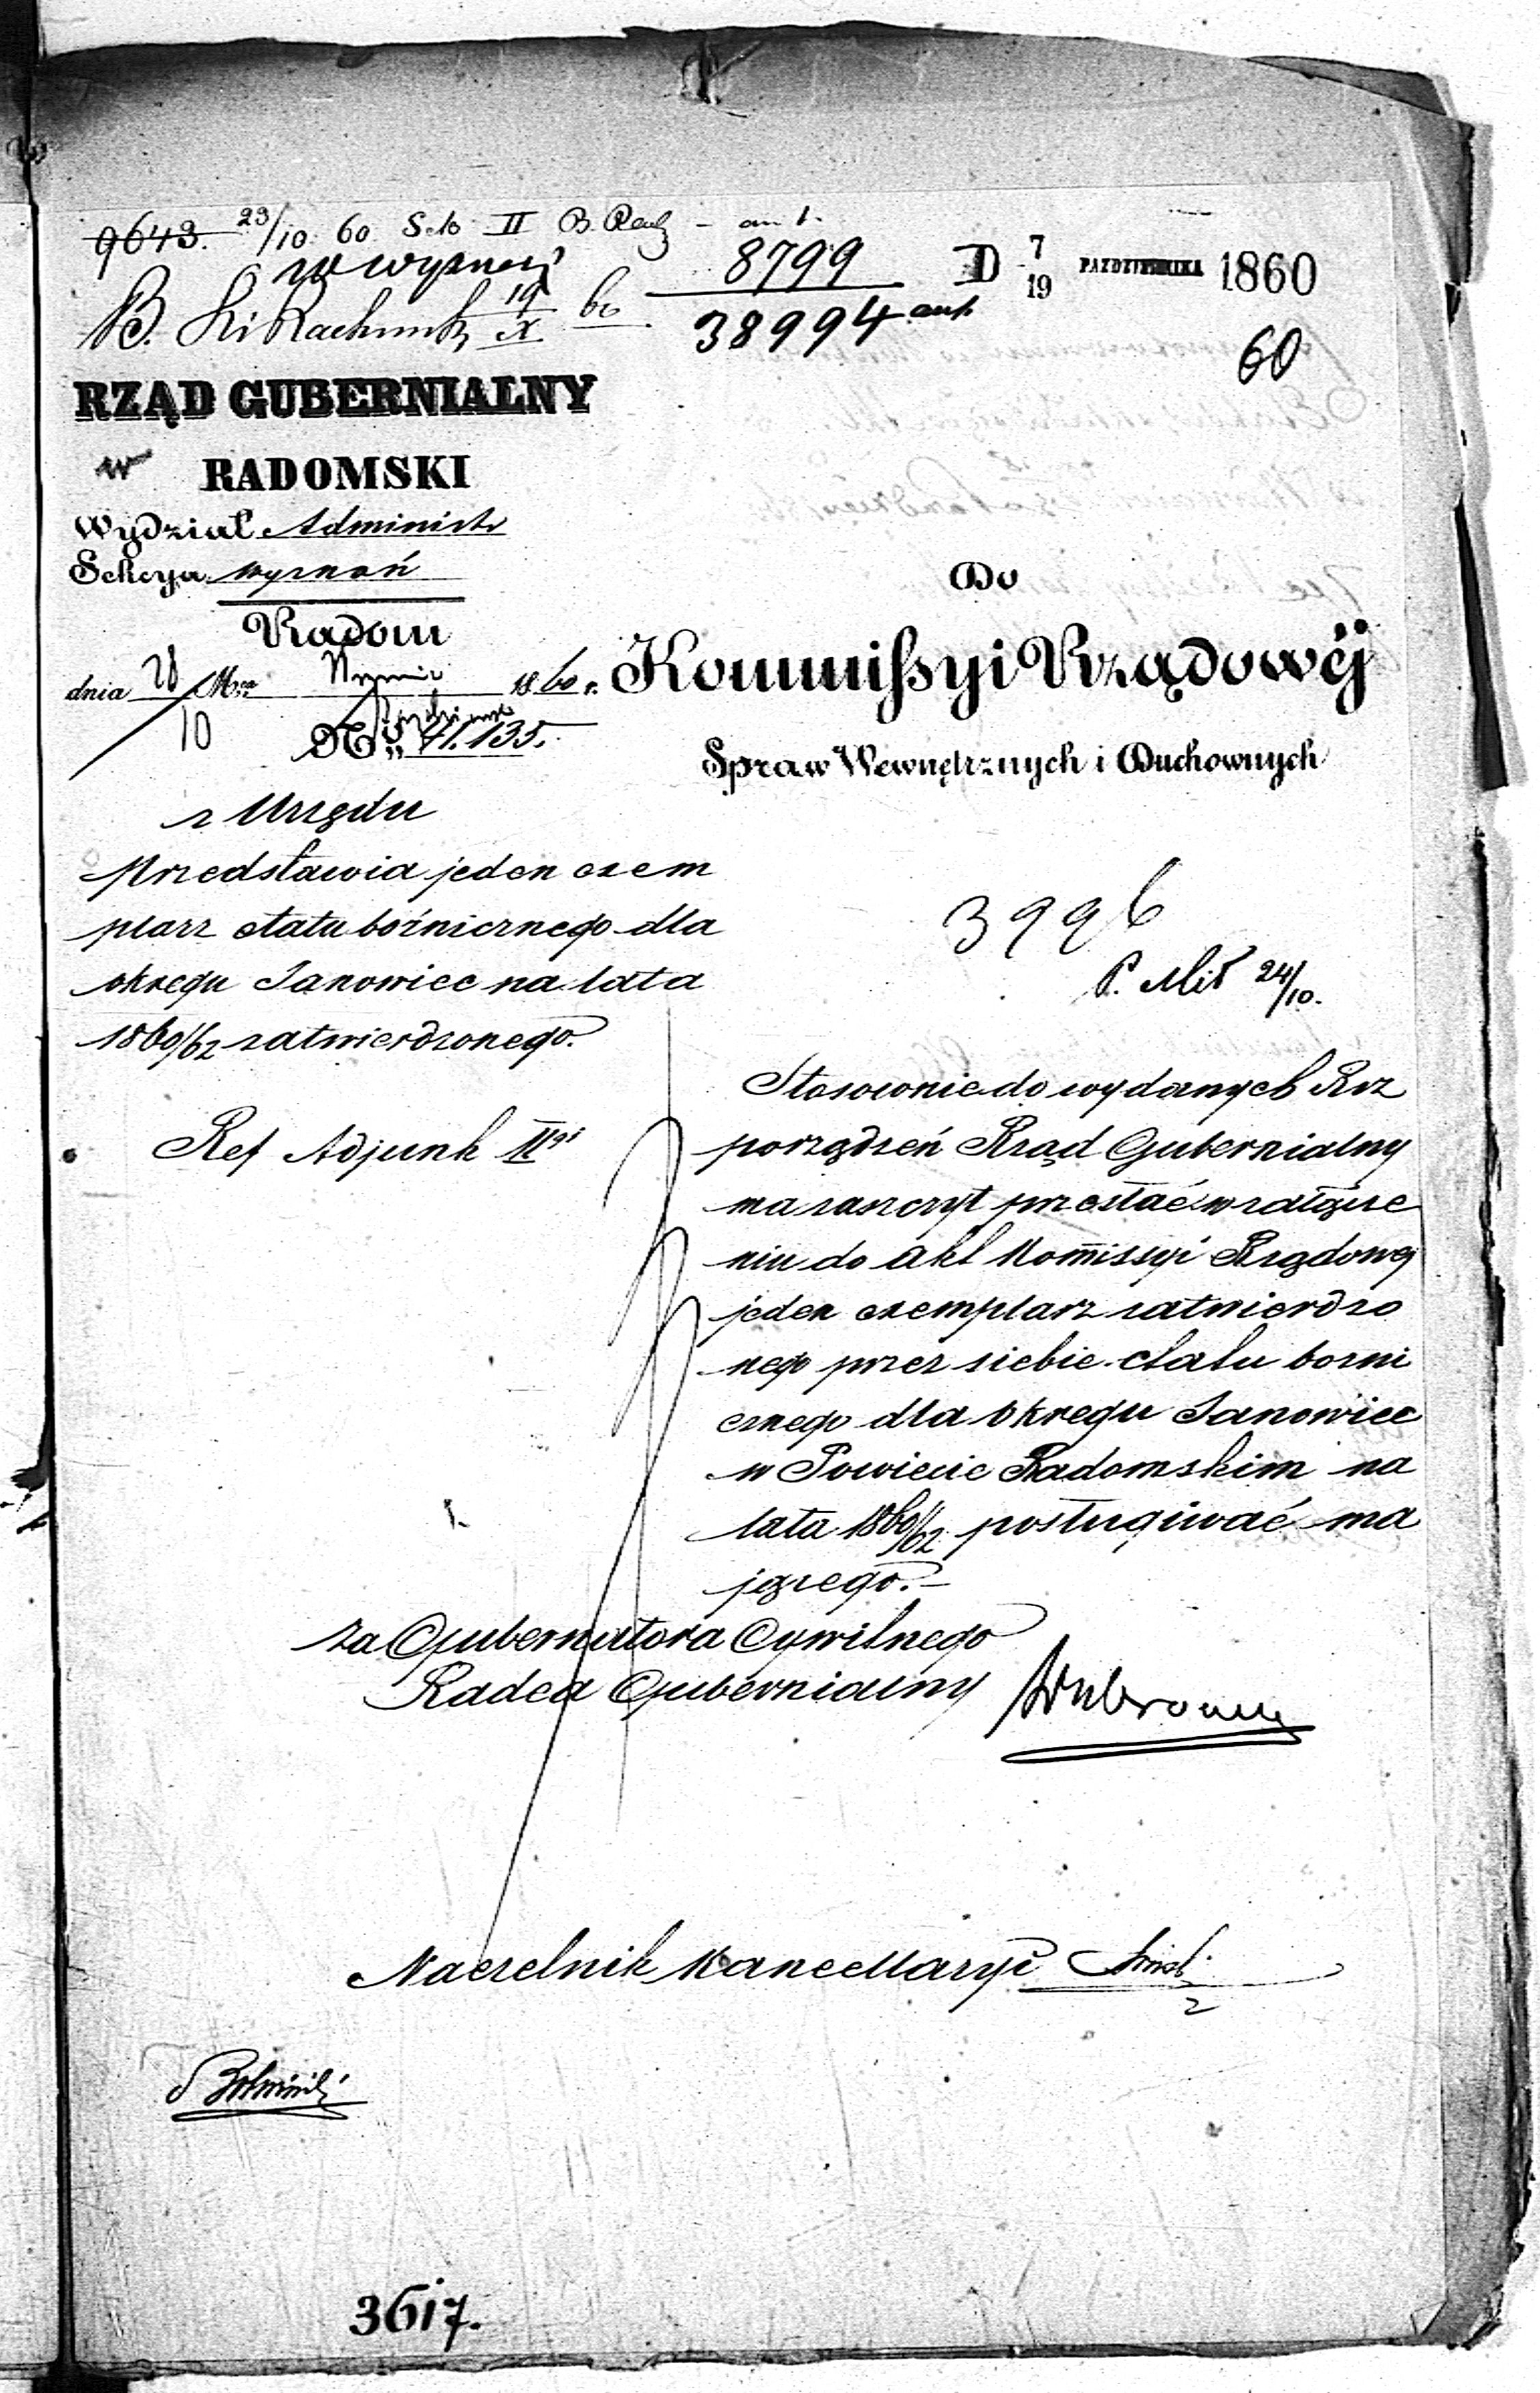 9643. 23/10 60 II
w wyznań
8799
D 7/19 PAZDZIERNIKA 1860
19/X 60
38994
60
RZĄD GUBERNIALNY
w RADOMSKI
Wydział Administr
Sekcya wyznań
Radom
dnia M-ca 1860 r.
10
No 71.135.
Do
Kommissyi Rządowéj
Spraw Wewnętrznych i Duchownych
z Urzędu
Przedstawia jeden exem
plarz etatu bożnicznego dla
okręgu Janowiec na lata
1860/62 zatwierdzonego.
Ref Adjunk II
3996
24/10.
Stosownie do wydanych Roz
porządzeń Rząd Gubernialny
ma zaszczyt przesłać w załącze
niu do akt Kommissyi Rządowej
jeden exemplarz zatwierdzo
nego przez siebie etatu bozni
cznego dla okręgu Janowiec
w Powiecie Radomskim na
lata 1860/62 posługiwać ma
jącego.–
za Gubernatora Cywilnego
Radca Gubernialny
Naczelnik Kancellaryi
3617.